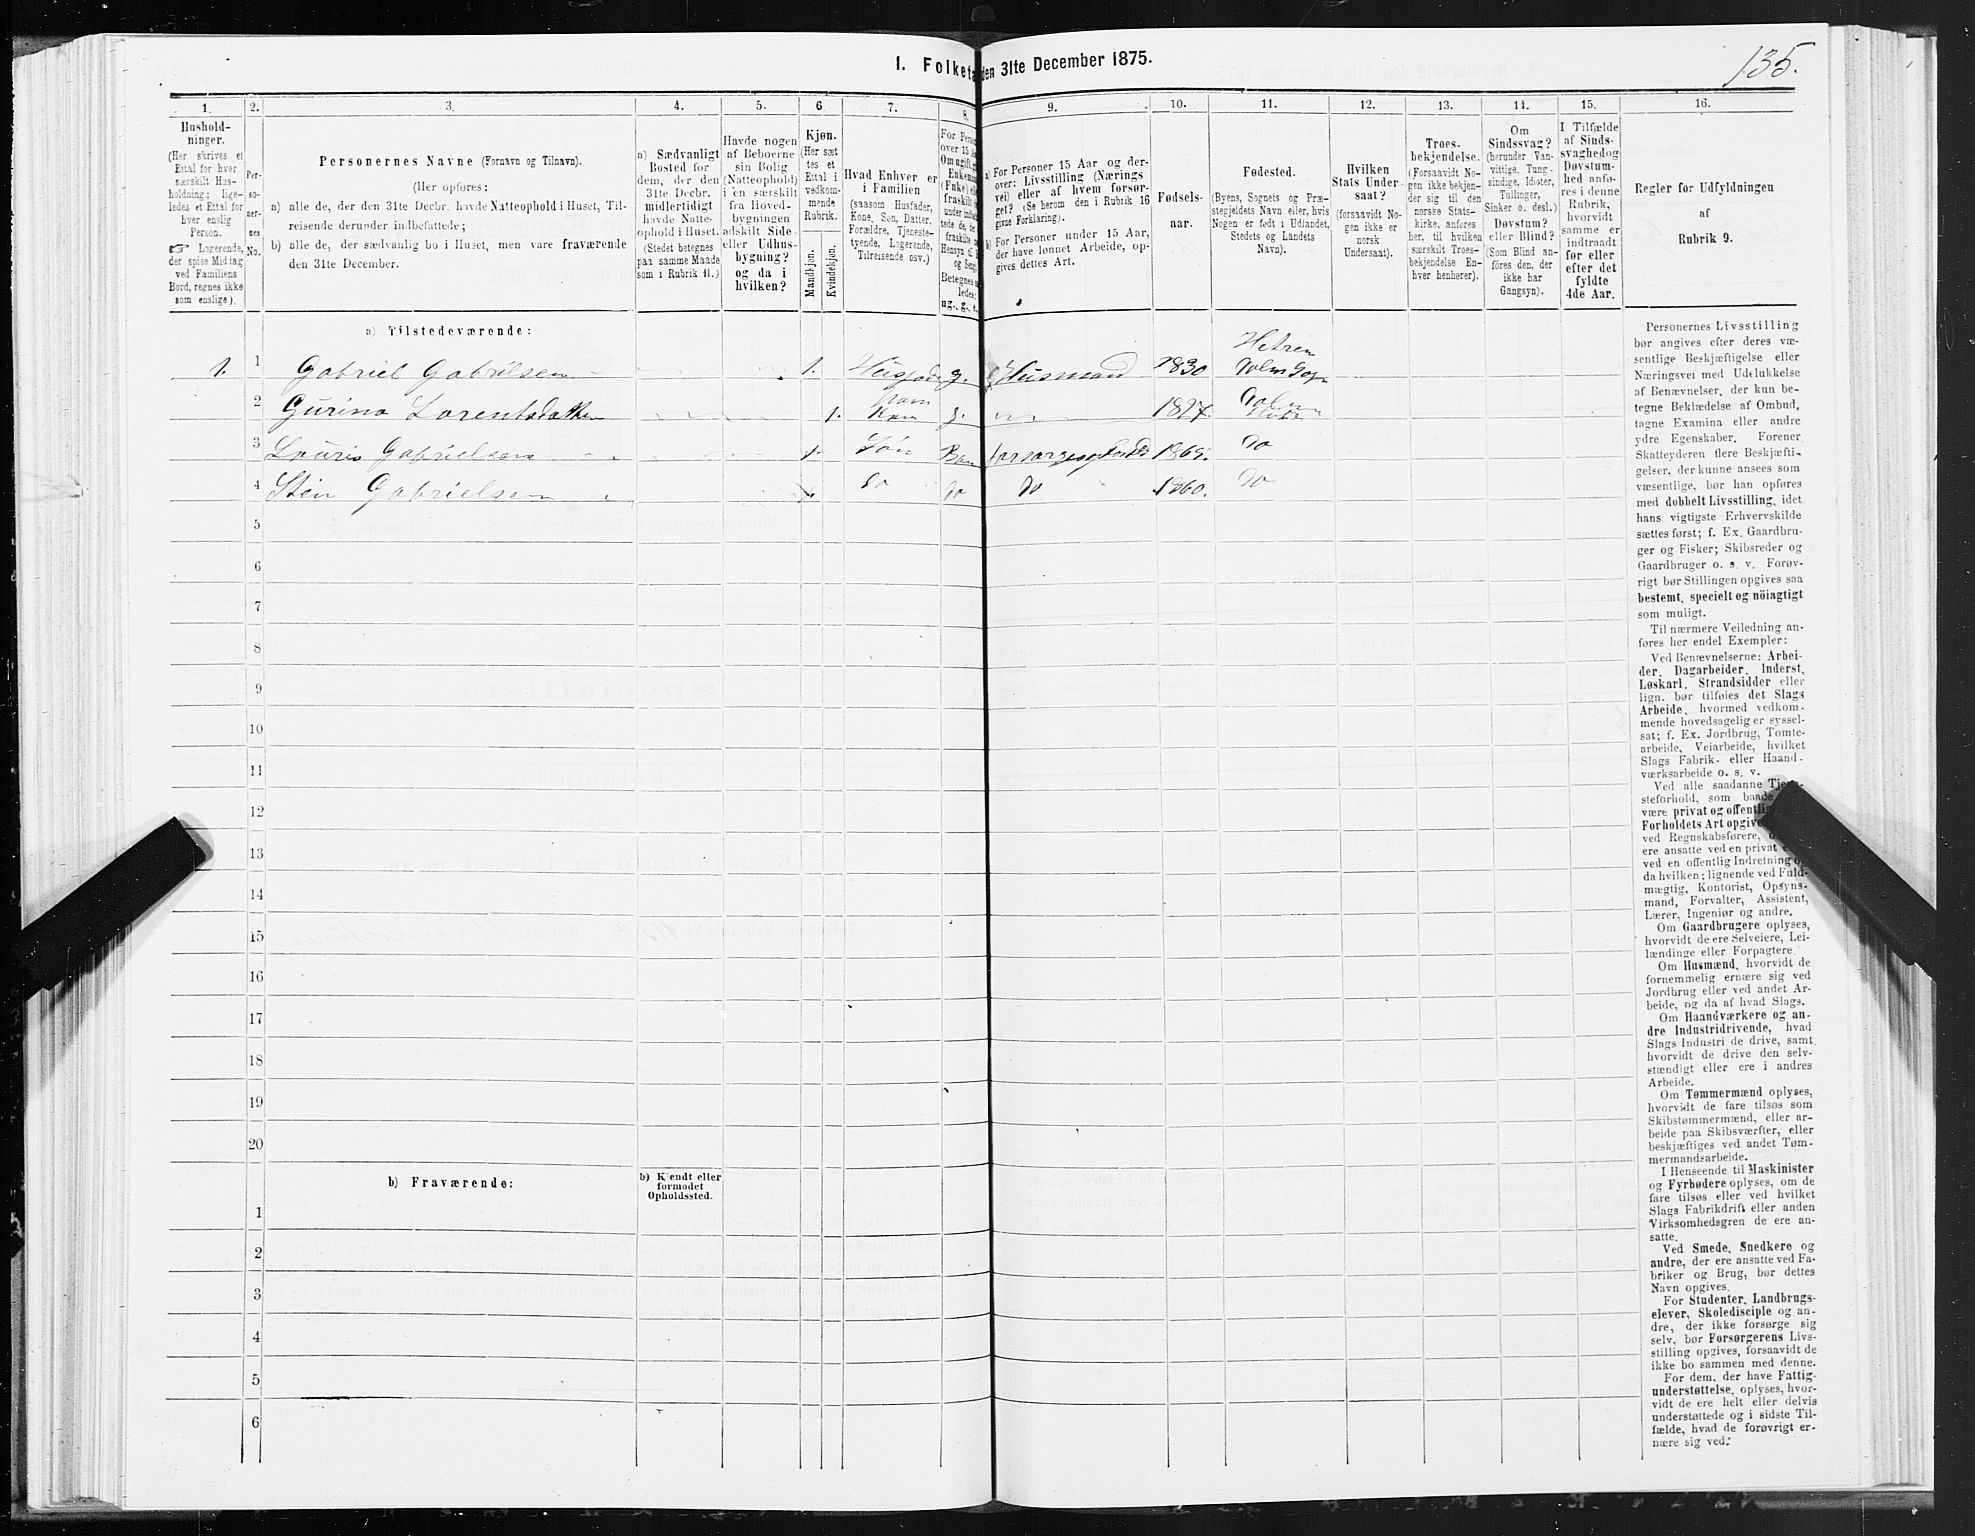 135.
1. Folketæ den 31te December 1875.
1. 2. 3. 4. 5. 6 7. 8. 9. 10. 11. 12. 13. 14. 15. 16.
Hushold-
ninger.
(Her skrives et
Ettal for hver
særskilt Hus-
holdning; lige-
ledes et Ettal for
hver enslig
Person.
☞ Logerende,
der spise Middag
ved Familiens
Bord, regnes ikke
som enslige).
Per-
so-
ner-
nes
No.
Personernes Navne (Fornavn og Tilnavn).
(Her opføres:
a) alle de, der den 31te Decbr. havde Natteophold i Huset, Til-
reisende derunder indbefattede;
b) alle de, der sædvanlig bo i Huset, men vare fraværende
den 31te December.
a) Sædvanligt
Bosted for
dem, der den
31te Decbr.
midlertidigt
havde Natte-
ophold i Huset.
(Stedet betegnes
paa samme Maade
som i Rubrik 11.)
Havde nogen
af Beboerne
sin Bolig
(Natteophold)
i en særskilt
fra Hoved-
bygningen
adskilt Side-
eller Udhus-
bygning?
og da i
hvilken?
Kjøn.
(Her sæt
tes et
Ettal i
vedkom-
mende
Rubrik.
Mandkjøn.
Kvindekjøn.
Hvad Enhver er
i Familien
(saasom Husfader,
Kone, Søn, Datter,
Forældre, Tjeneste-
tyende, Logerende,
Tilreisende osv.)
For Perso
over 15 A
Om ugift, g
Enkema
(Enke) ell
fraskilt
under indbe
tede de, de
fraskilte
Hensyn ti
og Seng
Betegnes s
ledes:
ug., g., e.
a) For Personer 15 Aar og der-
over: Livsstilling (Nærings
vei) eller af hvem forsør-
get? (Se herom den i Rubrik 16
givne Forklaring).
b) For Personer under 15 Aar,
der have lønnet Arbeide, op-
gives dettes Art.
Fødsels-
aar.
Fødested.
(Byens, Sognets og Præ-
stegjeldets Navn eller, hvis
Nogen er født i Udlandet,
Stedets og Landets
Navn).
Hvilken
Stats Under-
saat?
(forsaavidt No-
gen ikke er
norsk
Undersaat).
Troes-
bekjendelse.
(Forsaavidt No-
gen ikke bekjen-
der sig til den
norske Stats-
kirke, anføres
her, til hvilken
særskilt Troes-
bekjendelse En-
hver henhører).
Om
Sindssvag?
(herunder Van-
vittige, Tung-
sindige, Idioter,
Tullinger,
Sinker o. desl.)
Døvstum?
eller Blind?
(Som Blind an-
føres den, der
ikke har
Gangsyn).
I Tilfælde
af Sinds-
svaghed og
Døvstum-
hed anfø-
res i denne
Rubrik,
hvorvidt
samme er
indtraadt
før eller
efter det
fyldte
4de Aar.
Regler for Udfyldningen
af
Rubrik 9.
a) Tilstedeværende:
1. 1 Gabriel Gabrilsen 1. g. Husmand 1830 Hitren
Dolm Sogn
2 Gurina Lorentsdatter 1. Kon g. 1827. Dolm
3 Louris Gabrielsen 1. Søn Barn 1865. do
4 Sten Gabrielsen 1. do do do 1860. do
5
6
7
8
9
10
11
12
13
14
15
16
17
18
19
20
b) Fraværende:
b) Kjendt eller
formodet
Opholdssted.
1
2
3
4
5
6
Personernes Livsstilling
bør angives efter deres væ-
sentlige Beskjæftigelse eller
Næringsvei med Udelukkelse
af Benævnelser, der kun be-
tegne Beklædelse af Ombud,
tagne Examina eller andre
ydre Egenskaber. Forener
Skatteyderen flere Beskjæfti-
gelser, der kunne ansees som
væsentlige, bør han opføres
med dobbelt Livsstilling, idet
hans vigtigste Erhvervskilde
sættes først; f. Ex. Gaardbru-
ger og Fisker; Skibsreder og
Gaardbruger o. s. v. Forøv-
rigt bør Stillingen opgives saa
bestemt, specielt og nöiagtigt
som muligt.
Til nærmere Veiledning an-
føres her endel Exempler:
Ved Benævnelserne: Arbei-
der, Dagarbeider, Inderst,
Løskarl, Strandsidder eller
lign. bør tilføies det Slags
Arbeide, hvormed vedkom-
mende hovedsagelig er syssel-
sat; f. Ex. Jordbrug, Tomte-
arbeide, Veiarbeide, hvilket
Slags Fabrik- eller Haand-
værksarbeide o. s. v.
Ved alle saadanne Tje
steforhold, som baade
være privat og offentli
Forholdets Art opgive
ved Regnskabsførere,
ere ansatte ved en privat e
ved en offentlig Indretning
da hvilken; lignende ved Fuld-
mægtig, Kontorist, Opsyns-
mand, Forvalter, Assistent,
Lærer, Ingeniør og andre.
Om Gaardbrugere oplyses,
hvorvidt de ere Selveiere, Lei-
lændinge eller Forpagtere.
Om Husmænd, hvorvidt de
fornemmelig ernære sig ved
Jordbrug eller ved andet Ar-
beide, og da af hvad Slags.
Om Haandværkere og an-
dre Industridrivende, hvad
Slags Industri de drive, samt
hvorvidt de drive den selv-
stændigt eller ere i andres
Arbeide.
Om Tømmermænd oplyses,
hvorvidt de fare tilsøs som
Skibstømmermænd, eller ar-
beide paa Skibsværfter, eller
beskjæftiges ved andet Tøm-
mermandsarbeide.
I Henseende til Maskinister
og Fyrbødere oplyses, om de
fare tilsøs eller ved hvilket
Slags Fabrikdrift eller anden
Virksomhedsgren de ere an-
satte.
Ved Smede, Snedkere og
andre, der ere ansatte ved Fa-
briker og Brug, bør dettes
Navn opgives.
For Studenter, Landbrugs-
elever, Skoledisciple og an-
dre, der ikke forsørge sig
selv, bør Forsørgerens Livs-
stilling opgives, forsaavidt de
ikke bo sammen med denne.
For dem, der have Fattig-
understøttelse, oplyses, hvor-
vidt de ere helt eller delvis
understøttede og i sidste Til-
fælde, hvad de forøvrigt er-
nære sig ved.